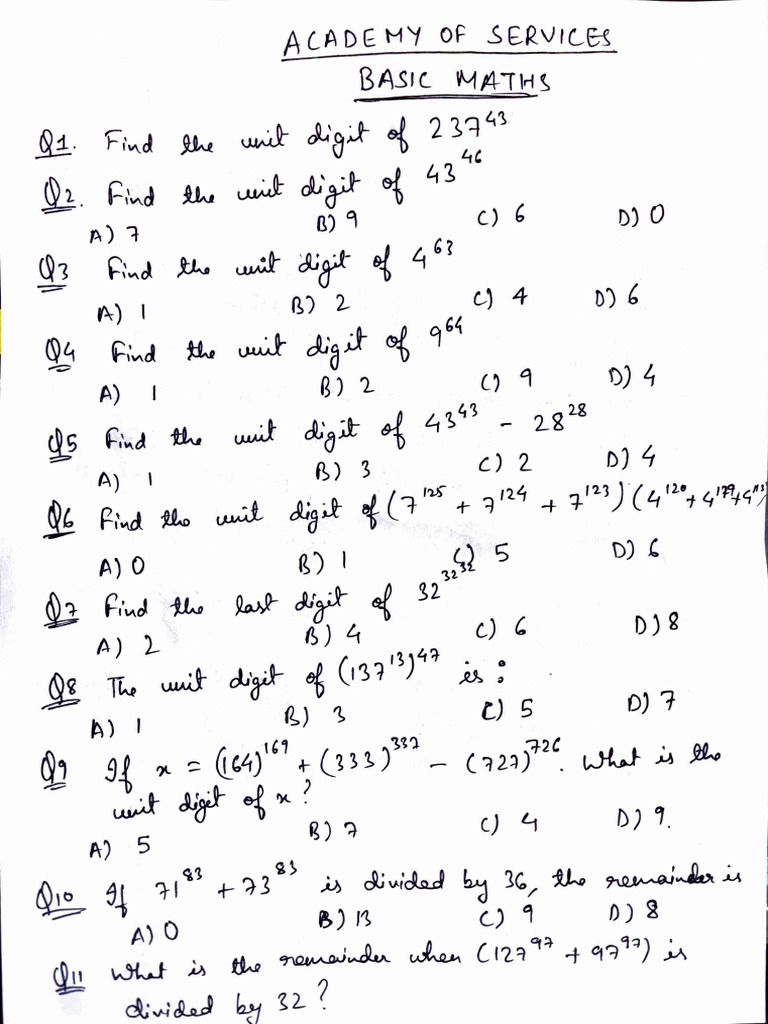 ACADEMY OF SERVICES
BASIC MATHS
Q1. Find the unit digit of 237^43
Q2. Find the unit digit of 43^46
A) 7 B) 9 C) 6 D) 0
Q3 Find the unit digit of 4^63
A) 1 B) 2 C) 4 D) 6
Q4 Find the unit digit of 9^64
A) 1 B) 2 C) 9 D) 4
Q5 Find the unit digit of 43^43 - 28^28
A) 1 B) 3 C) 2 D) 4
Q6 Find the unit digit of (7^125 + 7^124 + 7^123) (4^120 + 4^179 + 4^113)
A) 0 B) 1 C) 5 D) 6
Q7 Find the last digit of 32^32^32
A) 2 B) 4 C) 6 D) 8
Q8 The unit digit of (137^13)^47 is :
A) 1 B) 3 C) 5 D) 7
Q9 If x = (164)^169 + (333)^337 - (727)^726. What is the
unit digit of x?
A) 5 B) 7 C) 4 D) 9.
Q10 If 71^83 + 73^83 is divided by 36, the remainder is
A) 0 B) 13 C) 9 D) 8
Q11 What is the remainder when (127^97 + 97^97) is
divided by 32?